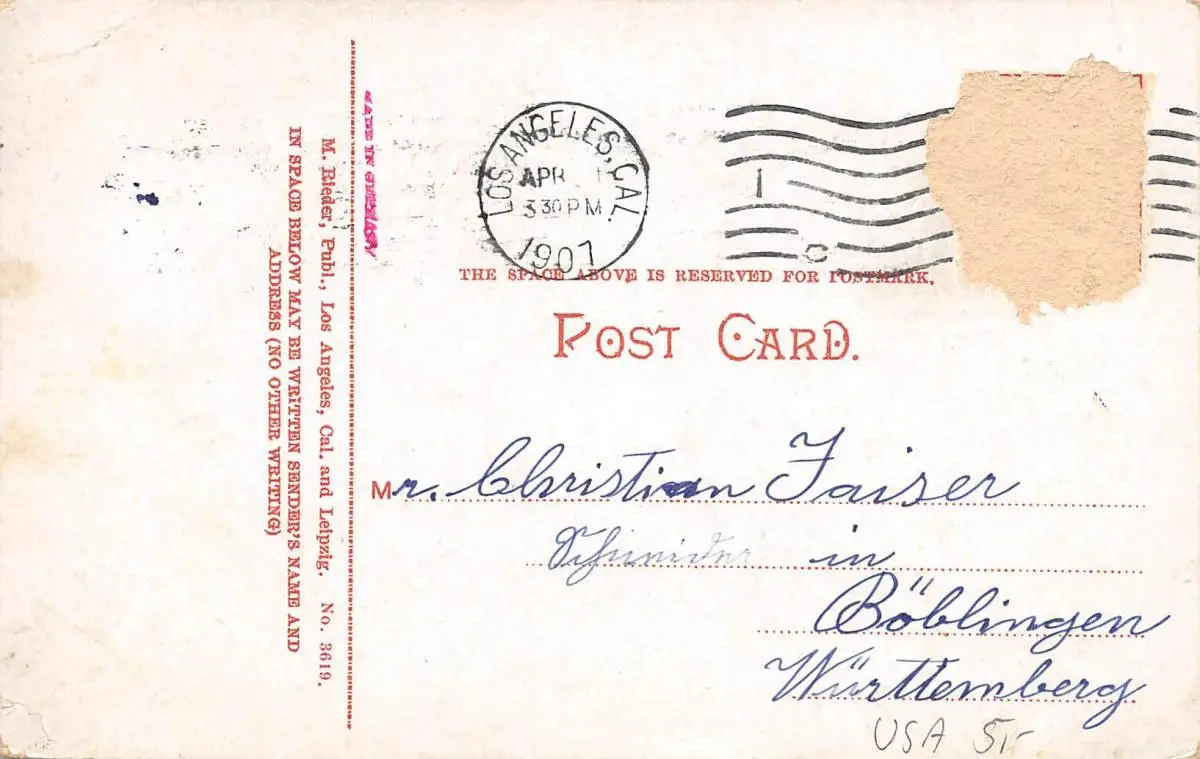 LOS ANGELES, CAL.
APR 1
3 30 PM
1907
1
C
THE SPACE ABOVE IS RESERVED FOR POSTMARK.
POST CARD.
Mr. Christian Faiser
Schneider in
Böblingen
Württemberg
USA 5,-
MADE IN GERMANY
M. Rieder, Publ., Los Angeles, Cal. and Leipzig. No. 3619.
IN SPACE BELOW MAY BE WRITTEN SENDER'S NAME AND
ADDRESS (NO OTHER WRITING)